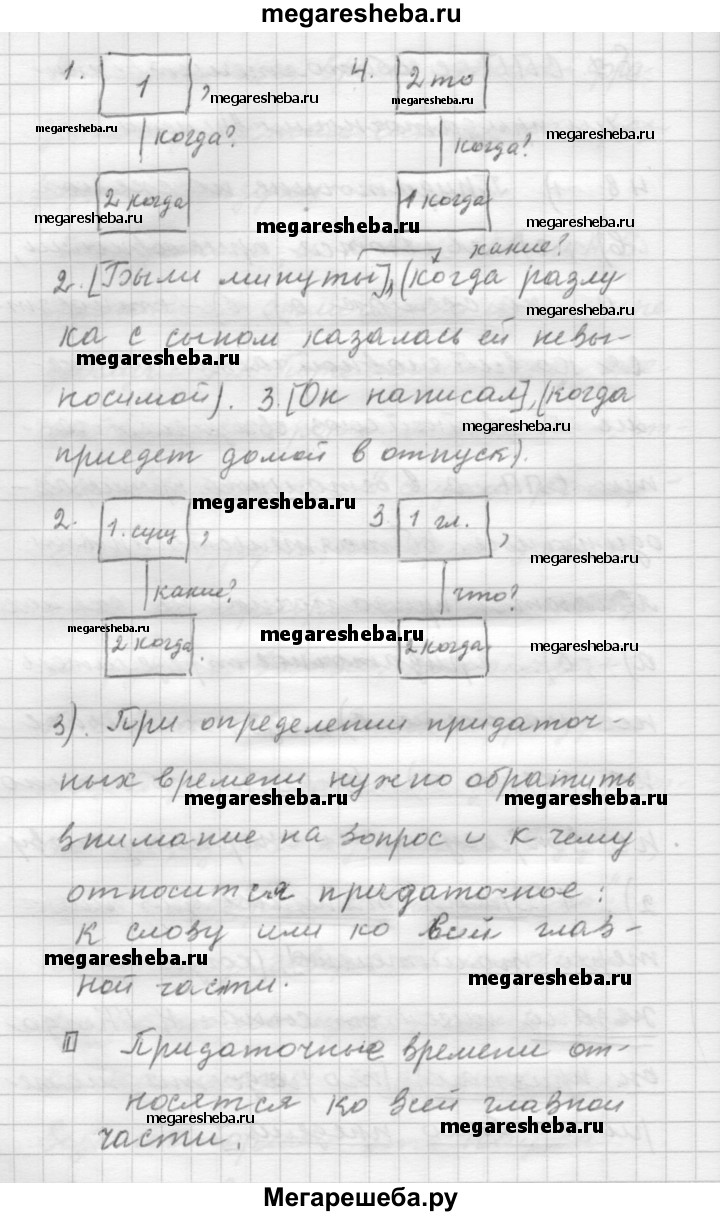 megaresheba.ru
1. 1, 4. 2 то
megaresheba.ru megaresheba.ru
megaresheba.ru когда? когда? megaresheba.ru
2 когда 1 когда
megaresheba.ru megaresheba.ru megaresheba.ru
какие?
2. [Были минуты], (когда разлу
megaresheba.ru
ка с сыном казалась ей невы-
megaresheba.ru megaresheba.ru
носимой). 3. [Он написал], (когда
megaresheba.ru
приедет домой в отпуск).
megaresheba.ru
2. 1. сущ, 3. 1 гл.,
megaresheba.ru
какие? что?
megaresheba.ru megaresheba.ru
2 когда. 2 когда megaresheba.ru
3). При определении придаточ-
ных времени нужно обратить
megaresheba.ru megaresheba.ru
внимание на вопрос и к чему
относится придаточное:
к слову или ко всей глав-
megaresheba.ru megaresheba.ru
ной части.
II Придаточные времени от-
носятся ко всей главной
megaresheba.ru megaresheba.ru
части.
Мегарешеба.ру